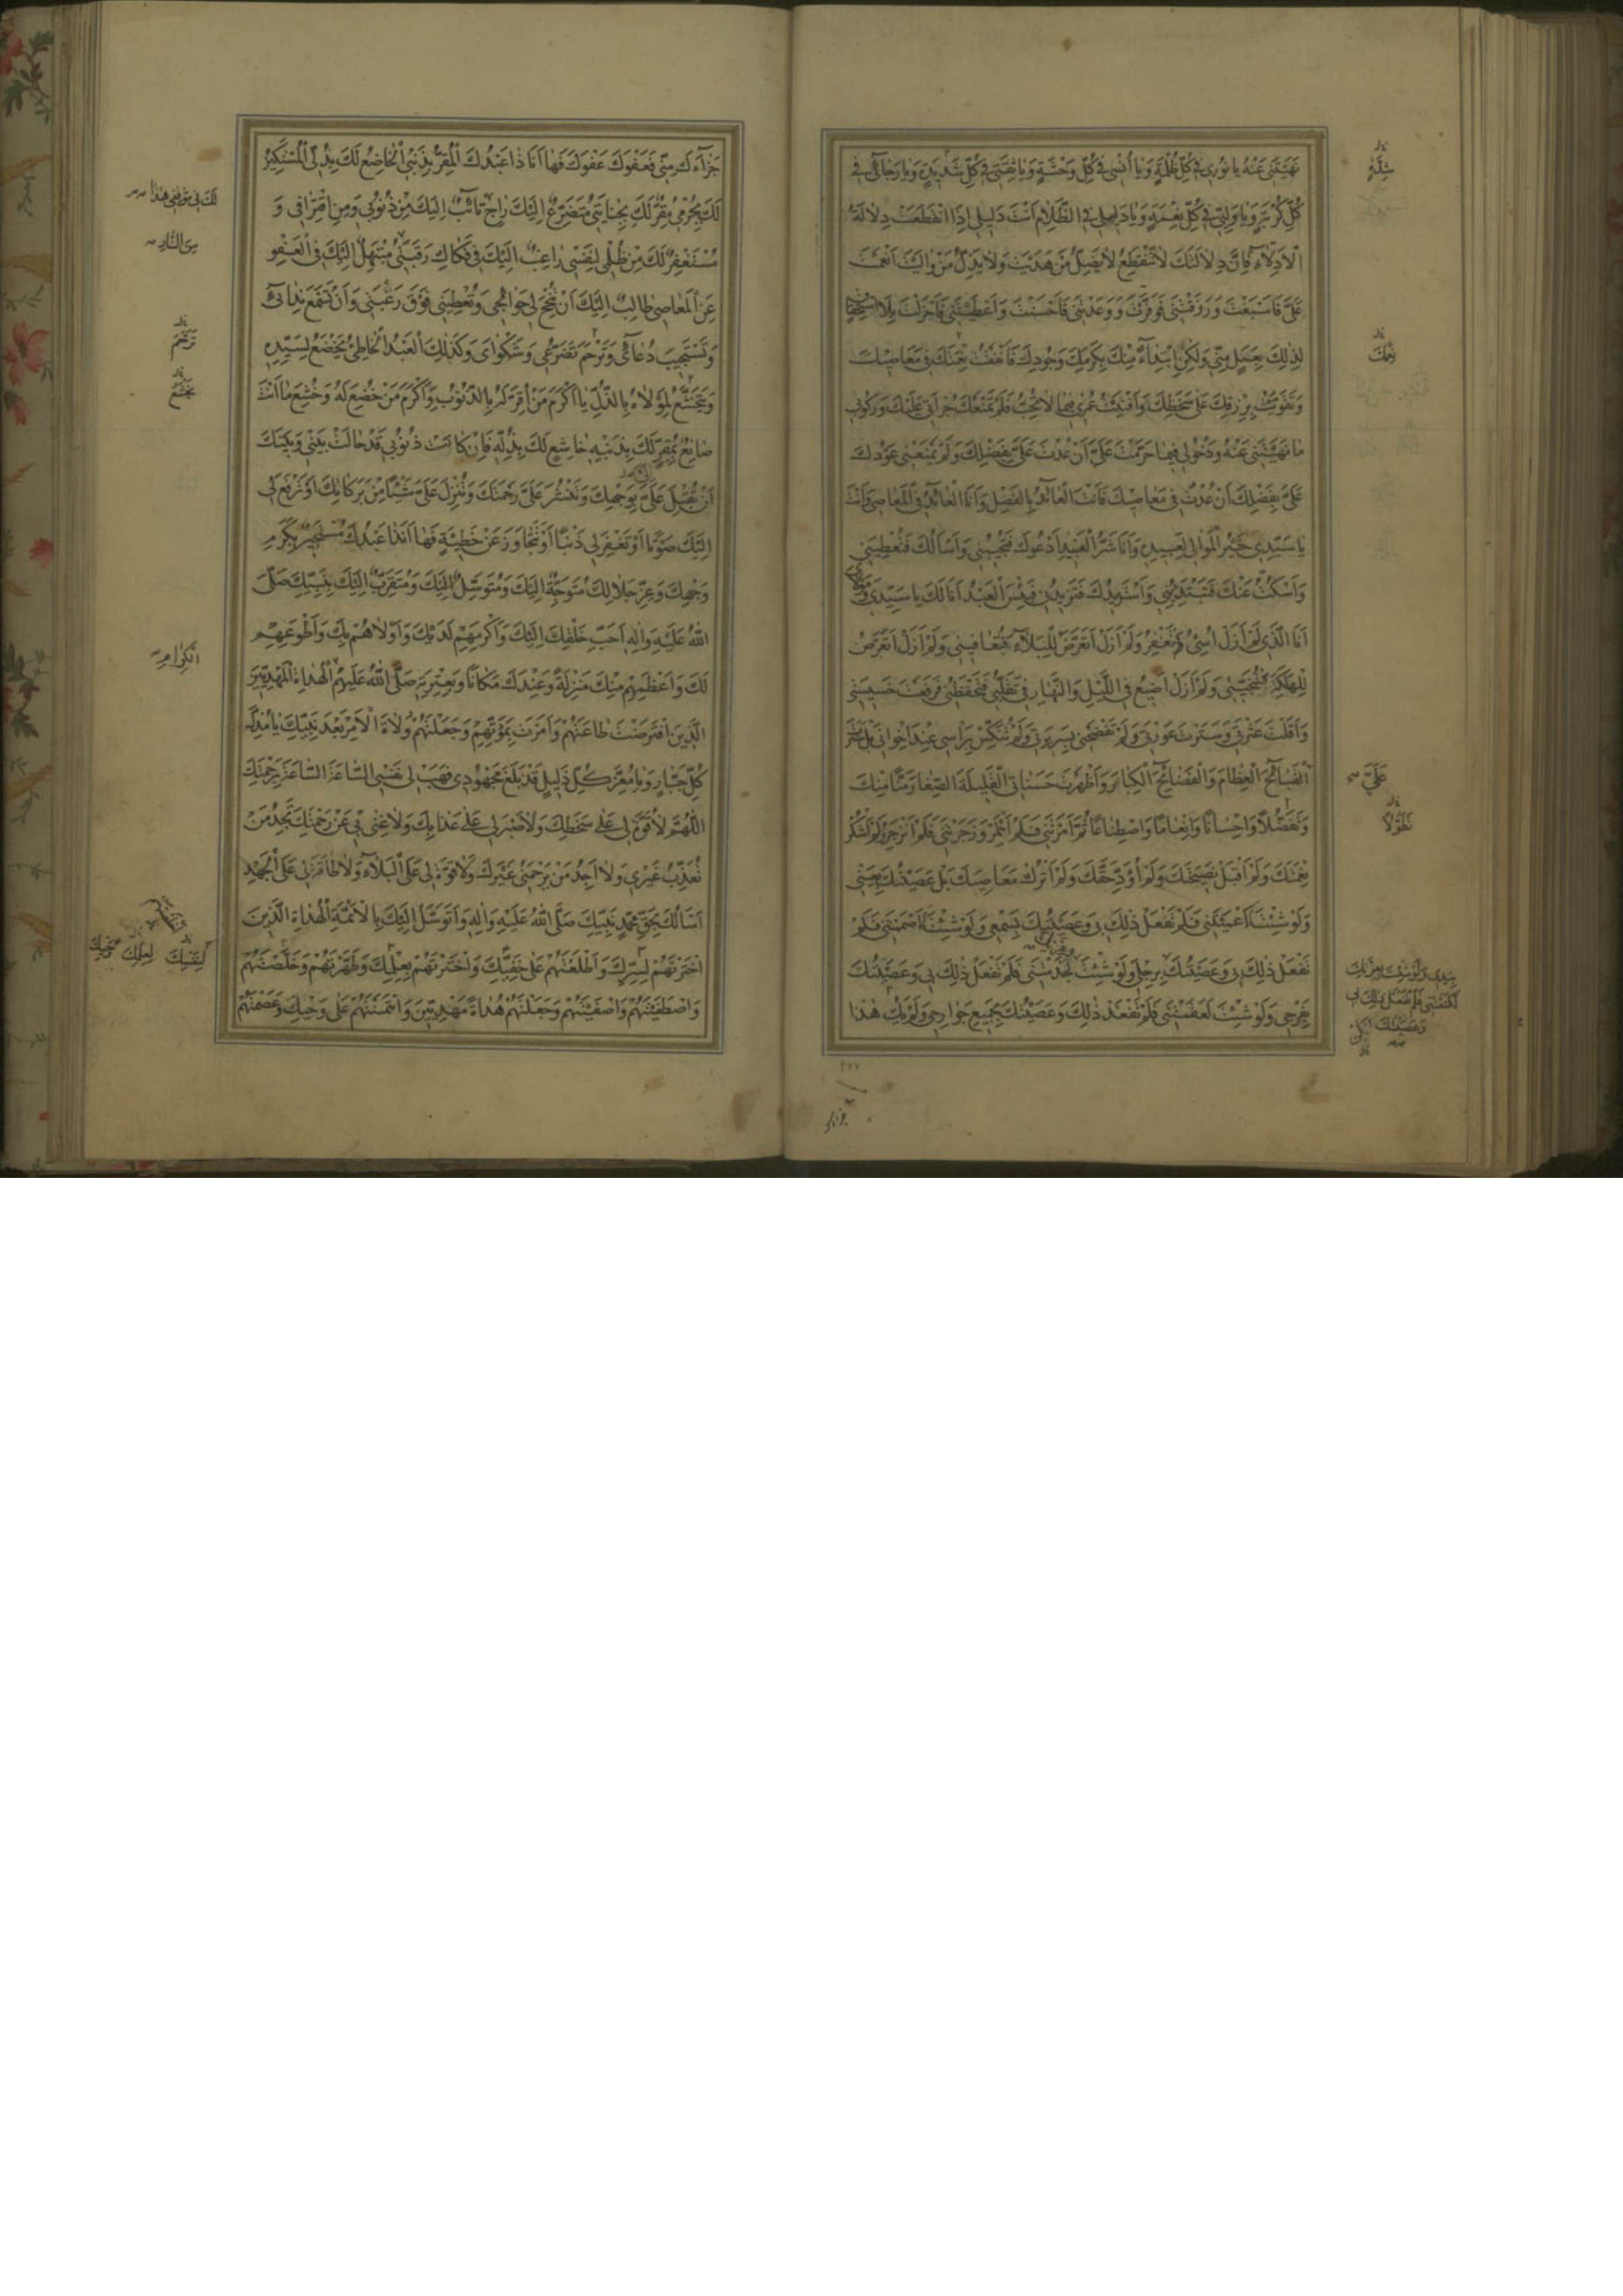 نَهَيْتَنِي عَنْهُ يا نُورِي فِي كُلِّ ظُلْمَةٍ وَيا أُنْسِي فِي كُلِّ وَحْشَةٍ وَيا ثِقَتِي فِي كُلِّ شَدِيدَةٍ وَيا رَجائِي فِي
كُلِّ كُرْبَةٍ وَيا وَلِيِّي فِي كُلِّ نِعْمَةٍ وَيا دَلِيلِي فِي الظَّلامِ أَنْتَ دَلِيلِي إِذَا انْقَطَعَتْ دِلالَةُ
الْأَدِلّاءِ فَإِنَّ دِلالَتَكَ لا تَنْقَطِعُ لا يَضِلُّ مَنْ هَدَيْتَ وَلا يَذِلُّ مَنْ والَيْتَ أَنْعَمْتَ
عَلَيَّ فَأَسْبَغْتَ وَرَزَقْتَنِي فَوَفَّرْتَ وَوَعَدْتَنِي فَأَحْسَنْتَ وَأَعْطَيْتَنِي فَأَجْزَلْتَ بِلَا اسْتِحْقاقٍ
لِذٰلِكَ بِعَمَلٍ مِنِّي وَلٰكِنِ ابْتِداءً مِنْكَ بِكَرَمِكَ وَجُودِكَ فَأَنْفَقْتُ نِعْمَتَكَ فِي مَعاصِيكَ
وَتَقَوَّيْتُ بِرِزْقِكَ عَلىٰ سَخَطِكَ وَأَفْنَيْتُ عُمْرِي فِيما لا تُحِبُّ فَلَمْ تَمْنَعْكَ جُرْأَتِي عَلَيْكَ وَرُكُوبِي
ما نَهَيْتَنِي عَنْهُ وَدُخُولِي فِيما حَرَّمْتَ عَلَيَّ أَنْ عُدْتَ عَلَيَّ بِفَضْلِكَ وَلَمْ يَمْنَعْنِي عَوْدُكَ
عَلَيَّ بِفَضْلِكَ أَنْ عُدْتُ فِي مَعاصِيكَ فَأَنْتَ الْعائِدُ بِالْفَضْلِ وَأَنَا الْعائِدُ فِي الْمَعاصِي وَأَنْتَ
يا سَيِّدِي خَيْرُ الْمَوالِي لِعَبِيدِهِ وَأَنَا شَرُّ الْعَبِيدِ أَدْعُوكَ فَتُجِيبُنِي وَأَسْأَلُكَ فَتُعْطِينِي
وَأَسْكُتُ عَنْكَ فَتَبْتَدِئُنِي وَأَسْتَزِيدُكَ فَتَزِيدُنِي فَبِئْسَ الْعَبْدُ أَنَا لَكَ يا سَيِّدِي وَمَوْلايَ
أَنَا الَّذِي لَمْ أَزَلْ أُسِيءُ وَتَغْفِرُ وَلَمْ أَزَلْ أَتَعَرَّضُ لِلْبَلاءِ وَتُعافِينِي وَلَمْ أَزَلْ أَتَعَرَّضُ
لِلْهَلَكَةِ وَتُنْجِينِي وَلَمْ أَزَلْ أُضِيعُ فِي اللَّيْلِ وَالنَّهارِ فِي تَقَلُّبِي فَتَحْفَظُنِي فَرَفَعْتَ خَسِيسَتِي
وَأَقَلْتَ عَثْرَتِي وَسَتَرْتَ عَوْرَتِي وَلَمْ تَفْضَحْنِي بِسَرِيرَتِي وَلَمْ تُنَكِّسْ بِرَأْسِي عِنْدَ إِخْوانِي بَلْ سَتَرْتَ
الْقَبائِحَ الْعِظامَ وَالْفَضائِحَ الْكِبارَ وَأَظْهَرْتَ حَسَناتِيَ الْقَلِيلَةَ الصِّغارَ مَنّاً مِنْكَ
وَتَفَضُّلاً وَإِحْساناً وَإِنْعاماً وَاصْطِناعاً ثُمَّ أَمَرْتَنِي فَلَمْ أَئْتَمِرْ وَزَجَرْتَنِي فَلَمْ أَنْزَجِرْ وَلَمْ أَشْكُرْ
نِعْمَتَكَ وَلَمْ أَقْبَلْ نَصِيحَتَكَ وَلَمْ أُؤَدِّ حَقَّكَ وَلَمْ أَتْرُكْ مَعاصِيكَ بَلْ عَصَيْتُكَ بِعَيْنِي
وَلَوْ شِئْتَ أَعْمَيْتَنِي فَلَمْ تَفْعَلْ ذٰلِكَ بِي وَعَصَيْتُكَ بِسَمْعِي وَلَوْ شِئْتَ أَصْمَمْتَنِي فَلَمْ
تَفْعَلْ ذٰلِكَ بِي وَعَصَيْتُكَ بِرِجْلِي وَلَوْ شِئْتَ لَجَذَمْتَنِي فَلَمْ تَفْعَلْ ذٰلِكَ بِي وَعَصَيْتُكَ
بِفَرْجِي وَلَوْ شِئْتَ لَعَقَمْتَنِي فَلَمْ تَفْعَلْ ذٰلِكَ وَعَصَيْتُكَ بِجَمِيعِ جَوارِحِي وَلَمْ يَكُ هٰذا
شِدَّةٍ
نِعَمَكَ
عَلَيَّ
تَطَوُّلاً
٢١٧
جَزاءَكَ مِنِّي فَعَفْوَكَ عَفْوَكَ فَها أَنَا ذا عَبْدُكَ الْمُقِرُّ بِذَنْبِي الْخاضِعُ لَكَ بِذُلِّي الْمُسْتَكِينُ
لَكَ بِجُرْمِي مُقِرٌّ لَكَ بِجِنايَتِي مُتَضَرِّعٌ إِلَيْكَ راجٍ تائِبٌ إِلَيْكَ مِنْ ذُنُوبِي وَمِنِ اقْتِرافِي وَ
مُسْتَغْفِرٌ لَكَ مِنْ ظُلْمِي لِنَفْسِي راغِبٌ إِلَيْكَ فِي فَكاكِ رَقَبَتِي مُبْتَهِلٌ إِلَيْكَ فِي الْعَفْوِ
عَنِ الْمَعاصِي طالِبٌ إِلَيْكَ أَنْ تُنْجِحَ لِي حَوائِجِي وَتُعْطِيَنِي فَوْقَ رَغْبَتِي وَأَنْ تَسْمَعَ نِدائِي
وَتَسْتَجِيبَ دُعائِي وَتَرْحَمَ تَضَرُّعِي وَشَكْوايَ وَكَذٰلِكَ الْعَبْدُ الْخاطِئُ يَخْضَعُ لِسَيِّدِهِ
وَيَتَخَشَّعُ لِمَوْلاهُ بِالذُّلِّ يا أَكْرَمَ مَنْ أُقِرَّ لَهُ بِالذُّنُوبِ وَأَكْرَمَ مَنْ خُضِعَ لَهُ وَخُشِعَ ما أَنْتَ
صانِعٌ بِمُقِرٍّ لَكَ بِذَنْبِهِ خاشِعٍ لَكَ بِذُلِّهِ فَإِنْ كانَتْ ذُنُوبِي قَدْ حالَتْ بَيْنِي وَبَيْنَكَ
أَنْ تُقْبِلَ عَلَيَّ بِوَجْهِكَ وَتَنْشُرَ عَلَيَّ رَحْمَتَكَ وَتُنْزِلَ عَلَيَّ شَيْئاً مِنْ بَرَكاتِكَ أَوْ تَرْفَعَ لِي
إِلَيْكَ صَوْتاً أَوْ تَغْفِرَ لِي ذَنْباً أَوْ تَتَجاوَزَ عَنْ خَطِيئَةٍ فَها أَنَا ذا عَبْدُكَ مُسْتَجِيرٌ بِكَرَمِ
وَجْهِكَ وَعِزِّ جَلالِكَ مُتَوَجِّهٌ إِلَيْكَ وَمُتَوَسِّلٌ إِلَيْكَ وَمُتَقَرِّبٌ إِلَيْكَ بِنَبِيِّكَ صَلَّى
اللّٰهُ عَلَيْهِ وَآلِهِ أَحَبِّ خَلْقِكَ إِلَيْكَ وَأَكْرَمِهِمْ لَدَيْكَ وَأَوْلاهُمْ بِكَ وَأَطْوَعِهِمْ
لَكَ وَأَعْظَمِهِمْ مِنْكَ مَنْزِلَةً وَعِنْدَكَ مَكاناً وَبِعِتْرَتِهِ صَلَّى اللّٰهُ عَلَيْهِمُ الْهُداةِ الْمَهْدِيِّينَ
الَّذِينَ افْتَرَضْتَ طاعَتَهُمْ وَأَمَرْتَ بِمَوَدَّتِهِمْ وَجَعَلْتَهُمْ وُلاةَ الْأَمْرِ بَعْدَ نَبِيِّكَ يا مُذِلَّ
كُلِّ جَبّارٍ وَيا مُعِزَّ كُلِّ ذَلِيلٍ قَدْ بَلَغَ مَجْهُودِي فَهَبْ لِي نَفْسِي السّاعَةَ السّاعَةَ بِرَحْمَتِكَ
اللّٰهُمَّ لا قُوَّةَ لِي عَلىٰ سَخَطِكَ وَلا صَبْرَ لِي عَلىٰ عَذابِكَ وَلا غِنىٰ بِي عَنْ رَحْمَتِكَ تَجِدُ مَنْ
تُعَذِّبُ غَيْرِي وَلا أَجِدُ مَنْ يَرْحَمُنِي غَيْرَكَ وَلا قُوَّةَ لِي عَلَى الْبَلاءِ وَلا طاقَةَ لِي عَلَى الْجَهْدِ
أَسْأَلُكَ بِحَقِّ مُحَمَّدٍ نَبِيِّكَ صَلَّى اللّٰهُ عَلَيْهِ وَآلِهِ وَأَتَوَسَّلُ إِلَيْكَ بِالْأَئِمَّةِ الْهُداةِ الَّذِينَ
اخْتَرْتَهُمْ لِسِرِّكَ وَأَطْلَعْتَهُمْ عَلىٰ خَفِيِّكَ وَاخْتَرْتَهُمْ بِعِلْمِكَ وَطَهَّرْتَهُمْ وَخَلَّصْتَهُمْ
وَاصْطَفَيْتَهُمْ وَأَصْفَيْتَهُمْ وَجَعَلْتَهُمْ هُداةً مَهْدِيِّينَ وَائْتَمَنْتَهُمْ عَلىٰ وَحْيِكَ وَعَصَمْتَهُمْ
لَكَ فِي مَوْقِفِي هٰذا
مِنَ النّارِ
تَرَحَّمَ
يَخْشَعُ